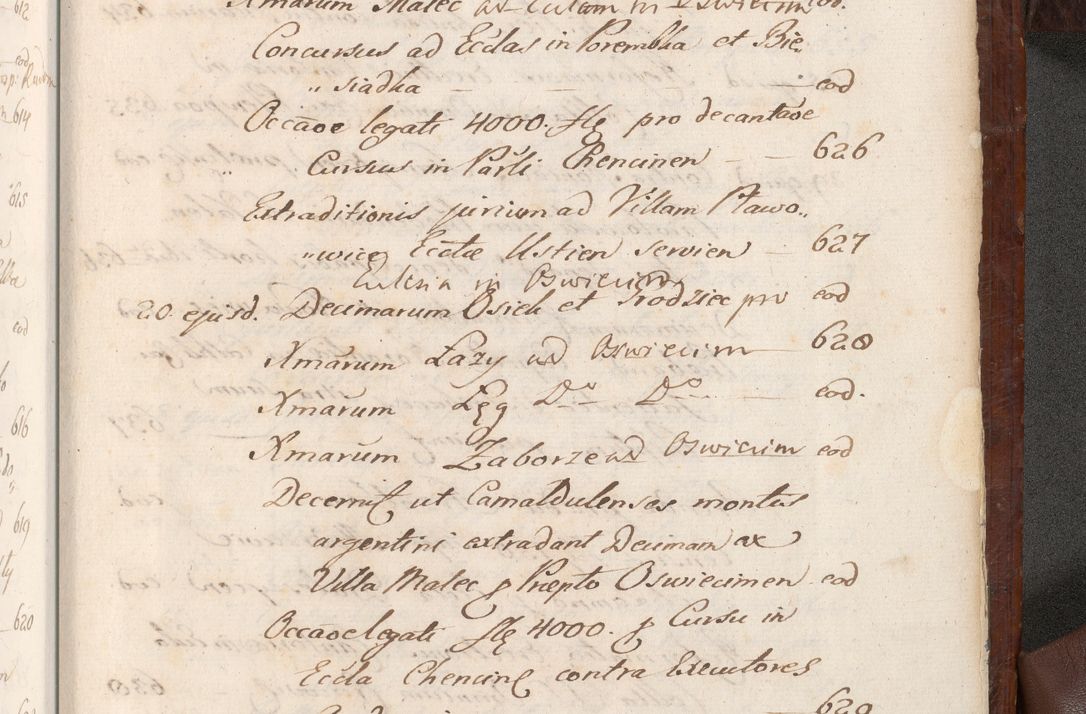 Xmarum Malec ad Eulam in Oswiecim eod.
Concursus ad Eccłas in Porembka et Bie„
„siadka — — — eod
Occãoe legati 4000. flę pro decantãoe
„ Cursus in Parli Chencinen — — 626
Extraditionis jurium ad Villam Pławo„
„wice Ecctæ Ustien servien — 627
Eulesia in Oswiecim
20 ejusd. Decimarum Osiek et Grodziec pro eod
Xmarum Łazy ad Oswiecim — 628
Xmarum Łęg D° D° — eod.
Xmarum Zaborze ad Oswiecim eod
Decernit ut Camaldulenses montis
argentini extradant Decimam ex
Villa Malec p Præpto Oswiecimen eod
Occãoe legati flę 4000. p Cursu in
Eccła Chencinę contra Executores
629
612
eod
614
615
eod
616
619
620